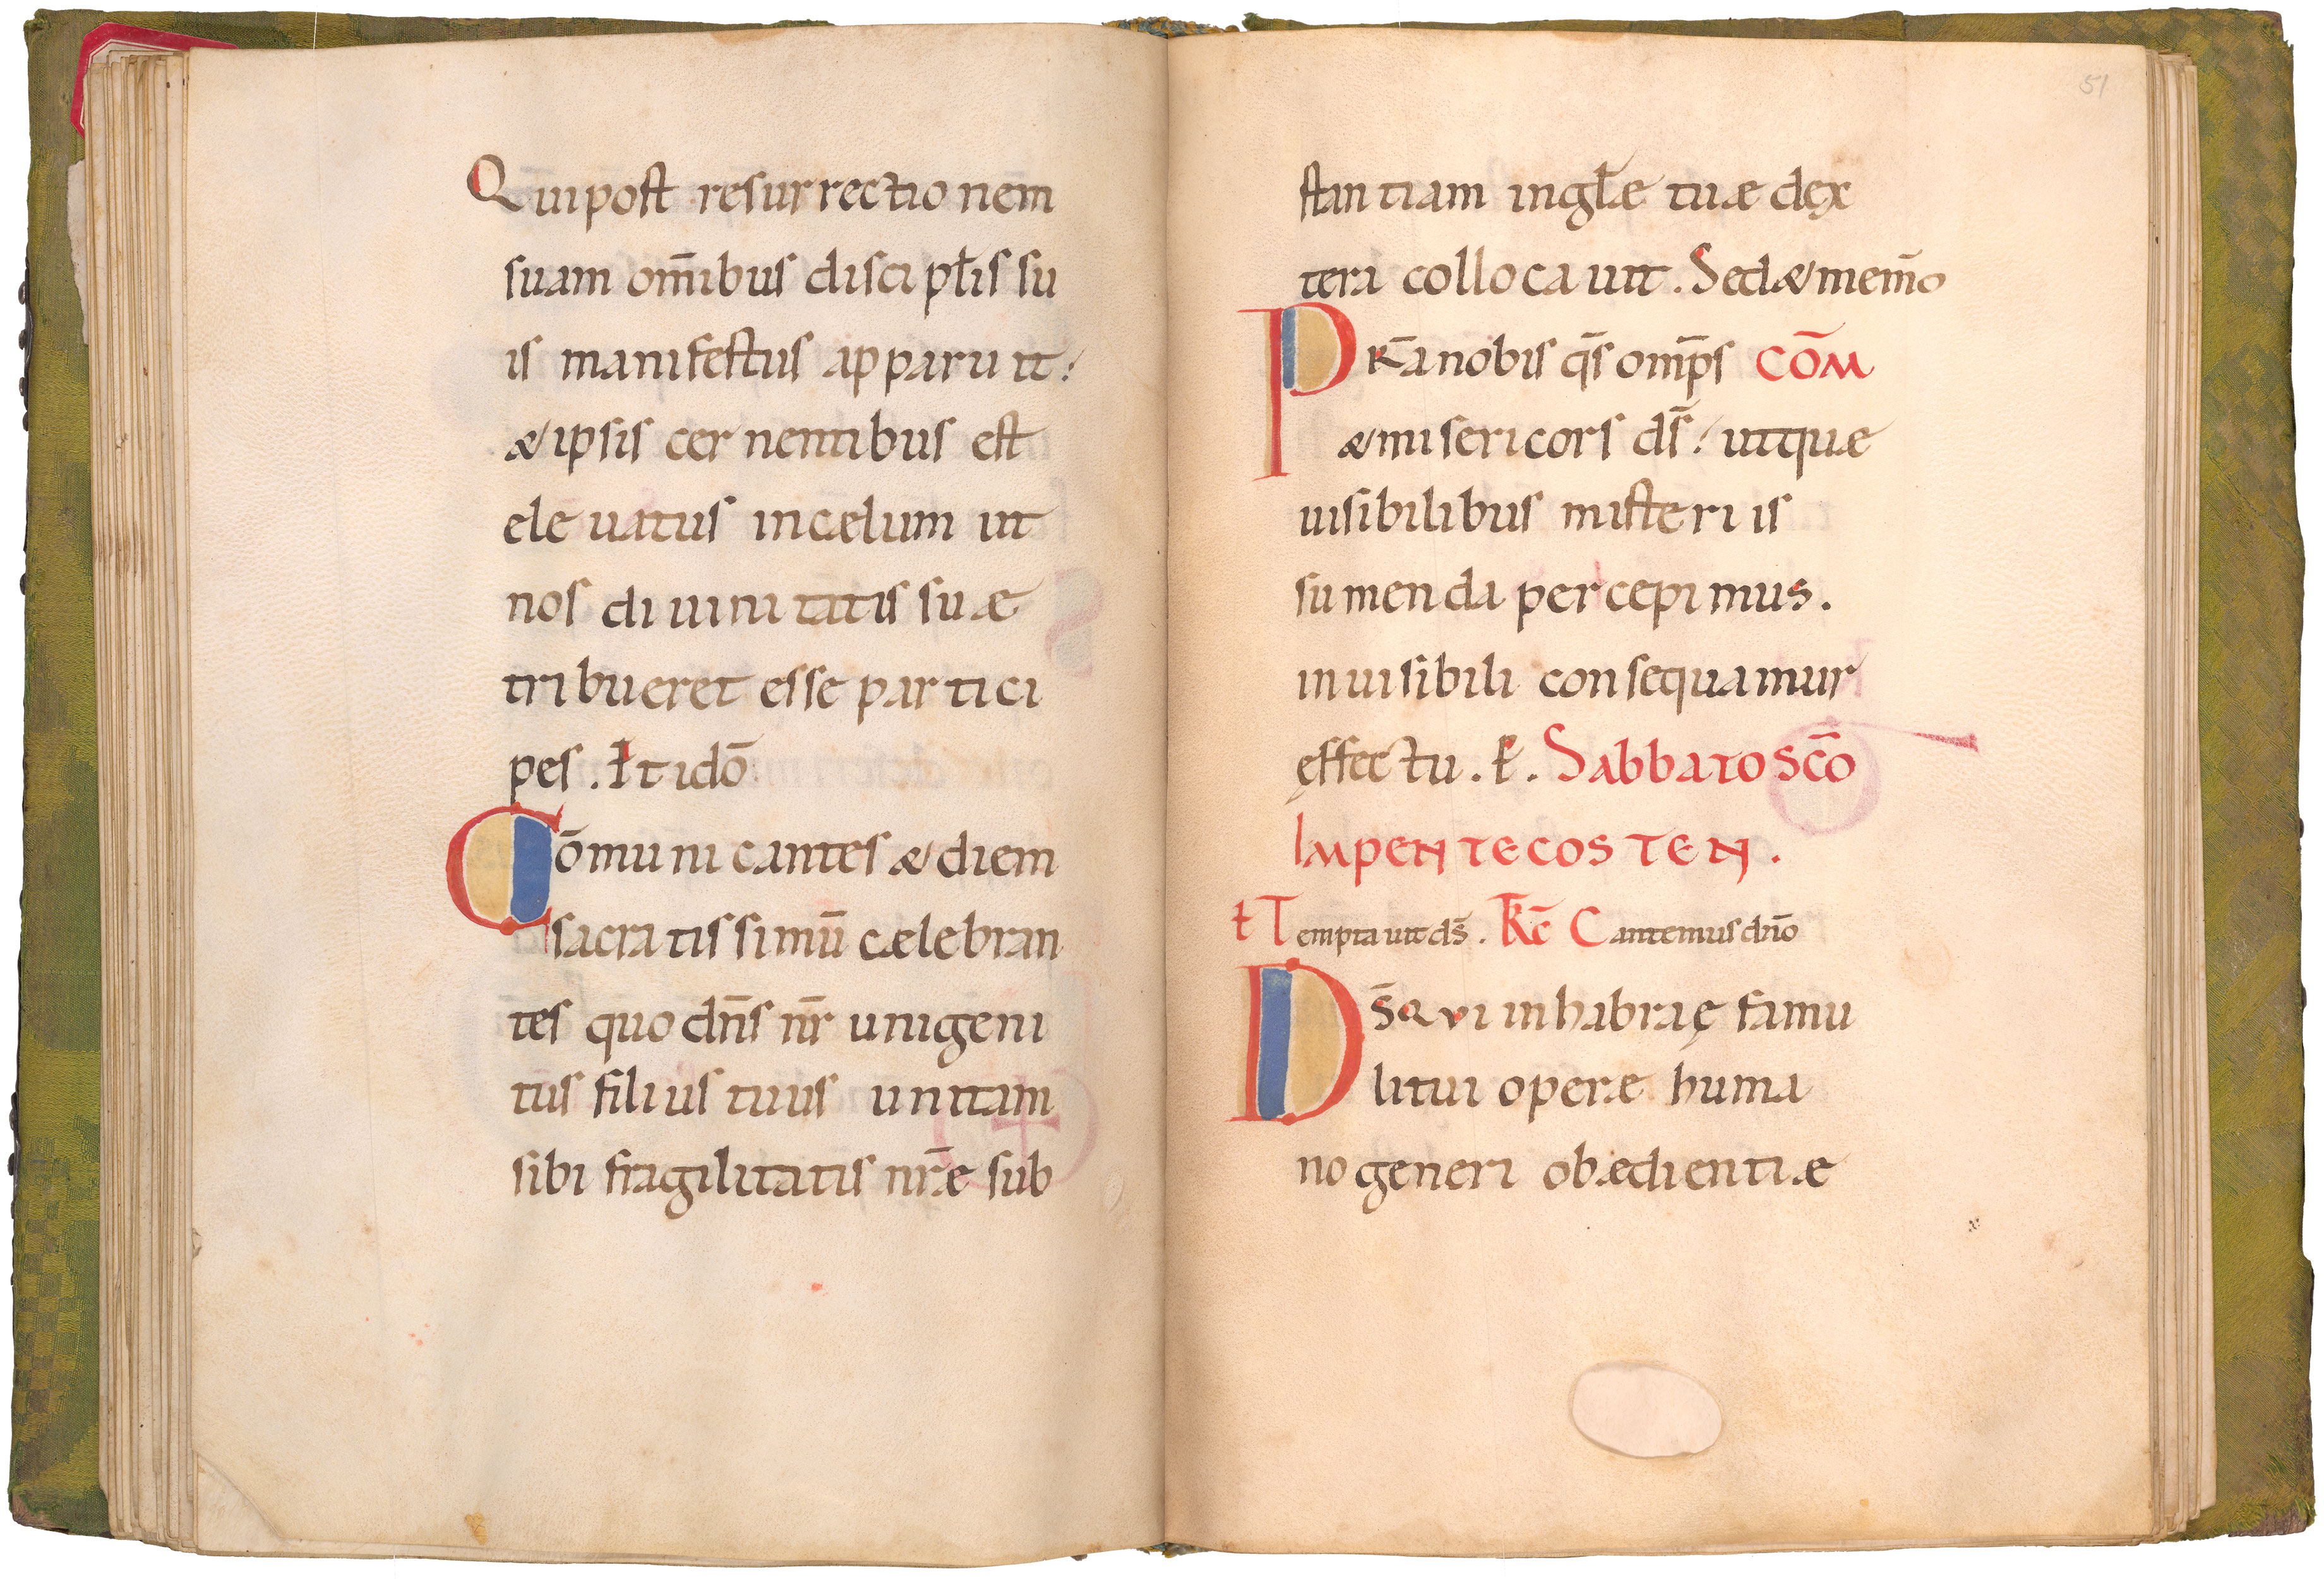 Qui post resurrectionem
suam om̄ibus discipłis su
is manifestus apparuit:
& ipsis cernentibus est
elevatus in cælum ut
nos divinitatis suæ
tribueret esse partici
pes. Et idō
Cōmunicantes & diem
sacratissimū cælebran
tes quo dn̄s nr̄ unigeni
tus filius tuus unitam
sibi fragilitatis nr̄æ sub
51
stantiam in głæ tuæ dex
tera collocavit. Sed & mem̄o
PRā nobis q̄s omp̄s CŌM
& misericors ds̄: ut quæ
visibilibus misteriis
sumenda percepimus.
invisibili consequamur
effectu. P. Sabbato scō
IN PENTECOSTEN.
t Temptavit ds̄. R̄c Cantemus dn̄o
DS̄ QVI in habrae famu
li tui operæ huma
no generi obædientiæ